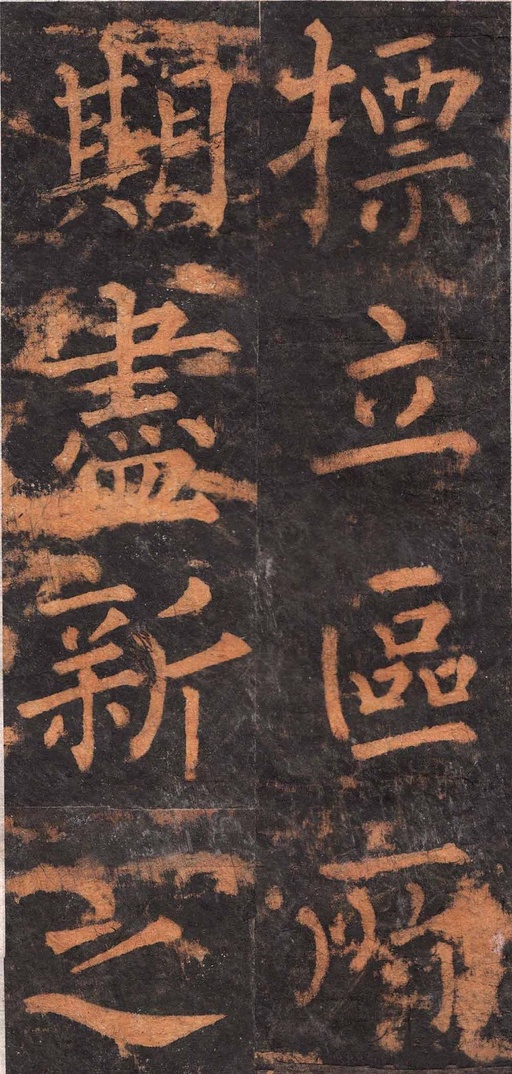 標立區
期盡新之